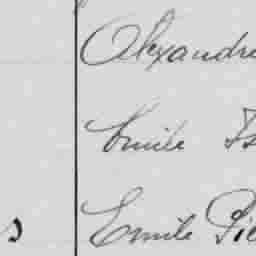 Alexandre
Emile Is
s Emile Pie